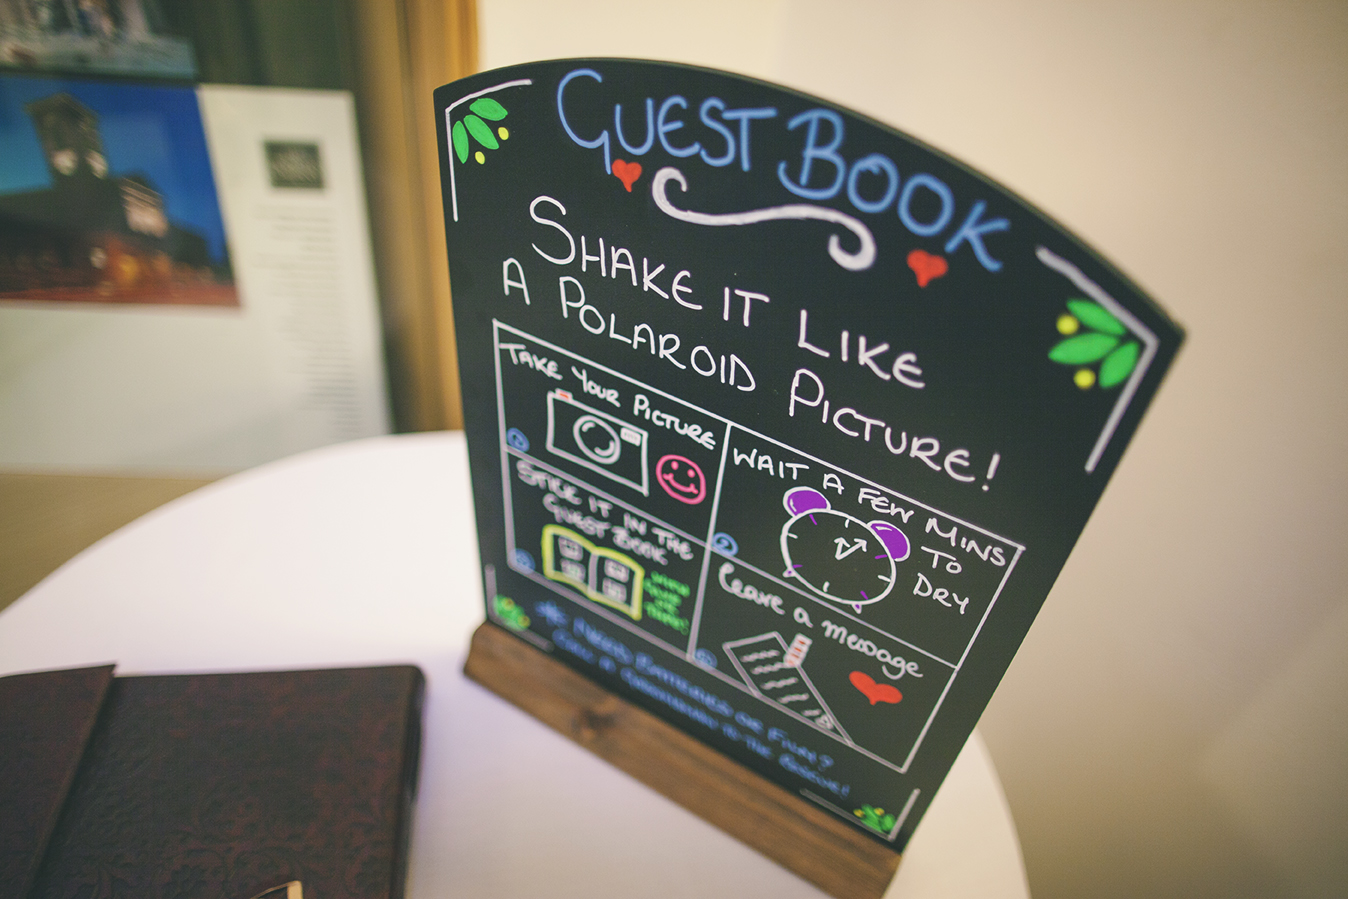 GUEST BOOK
SHAKE IT LIKE
A POLAROID PICTURE!
TAKE YOUR PICTURE
1
WAIT A FEW MINS
TO
DRY
2
STICK IT IN THE
GUEST BOOK
Leave a message
OR FILM?
IN THE